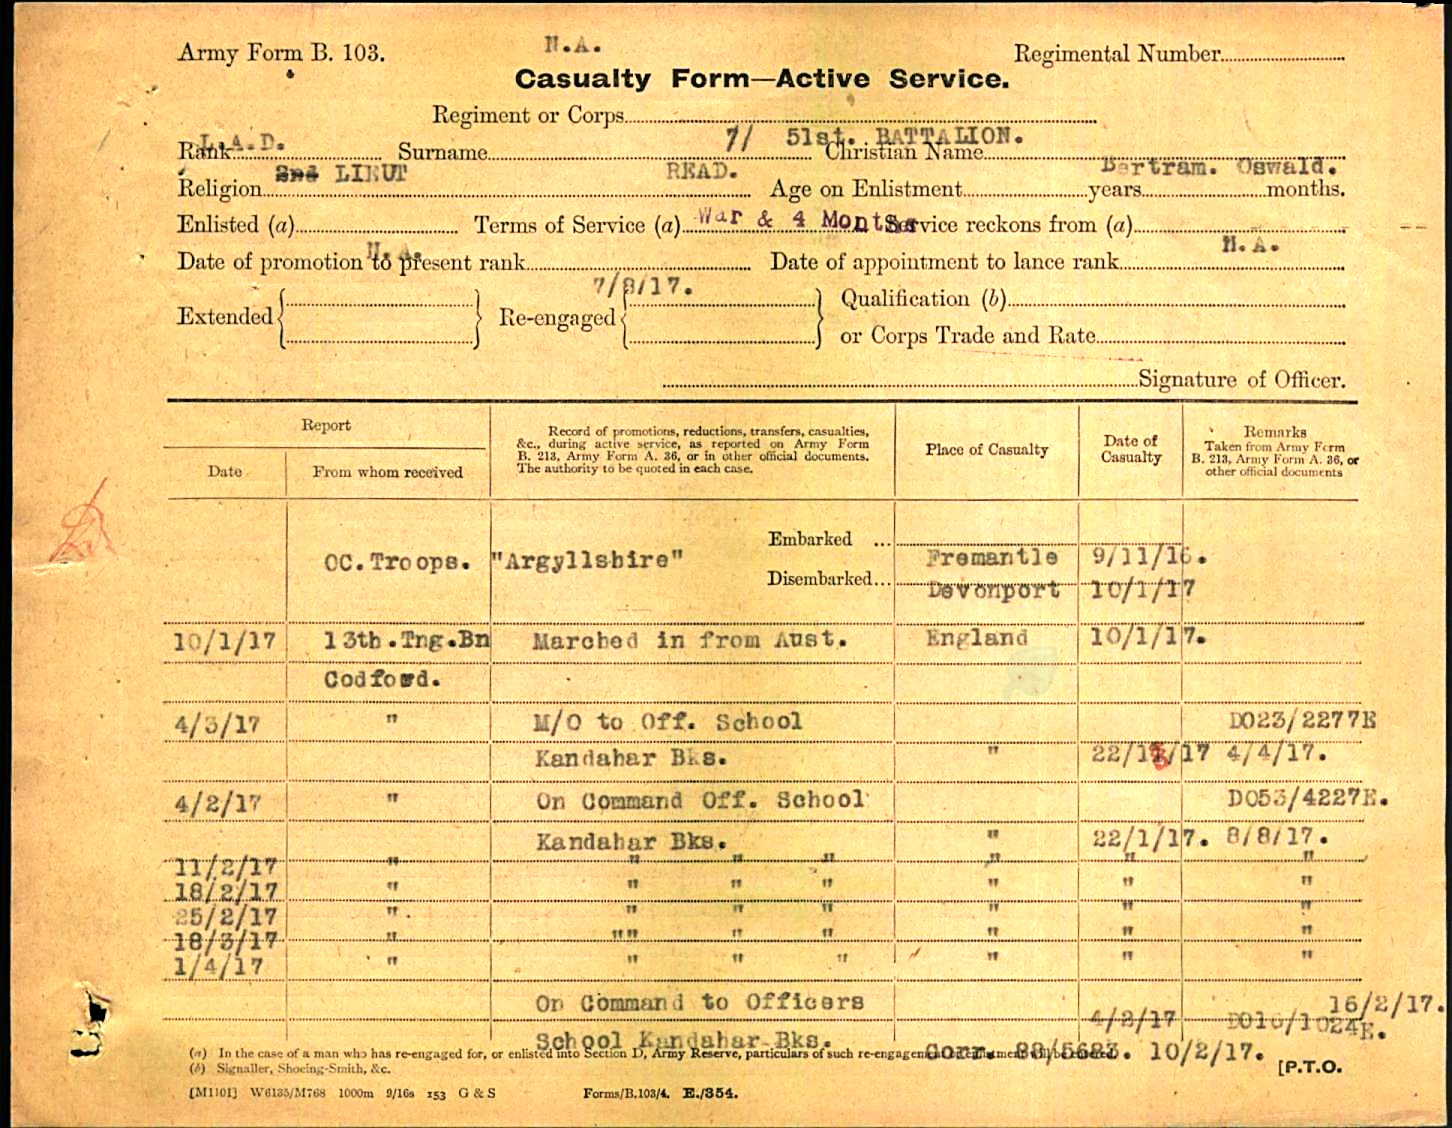 N.A.
Army Form B. 103.
Regimental Number
Casualty Form—Active Service.
Regiment or Corps
7/ 51st. BATTALION.
L.A.D.
Rank Surname Christian Name
2nd LIEUT READ. Bertram. Oswald.
Religion Age on Enlistment years months.
Enlisted (a) Terms of Service (a) War & 4 Months Service reckons from (a)
N.A. N.A.
Date of promotion to present rank Date of appointment to lance rank
7/8/17.
Extended Re-engaged Qualification (b)
or Corps Trade and Rate
Signature of Officer.
Report
Date
From whom received
Record of promotions, reductions, transfers, casualties,
&c., during active service, as reported on Army Form
B. 213, Army Form A. 36, or in other official documents.
The authority to be quoted in each case.
Place of Casualty
Date of
Casualty
Remarks
Taken from Army Form
B. 213, Army Form A. 36, or
other official documents
Embarked ...
OC.Troops. "Argyllshire" Fremantle 9/11/16.
Disembarked...
Devonport 10/1/17
10/1/17 13th.Tng.Bn Marched in from Aust. England 10/1/17.
Codford.
4/3/17 " M/O to Off. School DO23/2277E
Kandahar Bks. " 22/1/17 4/4/17.
4/2/17 " On Command Off. School DO53/4227E.
Kandahar Bks. " 22/1/17. 8/8/17.
11/2/17 " " " " " " "
18/2/17 " " " " " " "
25/2/17 " " " " " " "
18/3/17 " "" " " " " "
1/4/17 " " " " " " "
On Command to Officers 16/2/17.
4/2/17 DO16/1024E.
School Kandahar Bks. Corr. 88/5683. 10/2/17.
(a) In the case of a man who has re-engaged for, or enlisted into Section D, Army Reserve, particulars of such re-engagement or enlistment will be entered.
(b) Signaller, Shoeing-Smith, &c.
[P.T.O.
[M1101] W6135/M768 1000m 9/16s 153 G & S Forms/B.103/4. E./354.